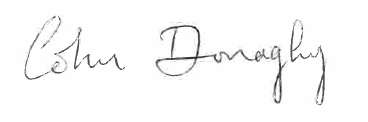 Colum Donaghy